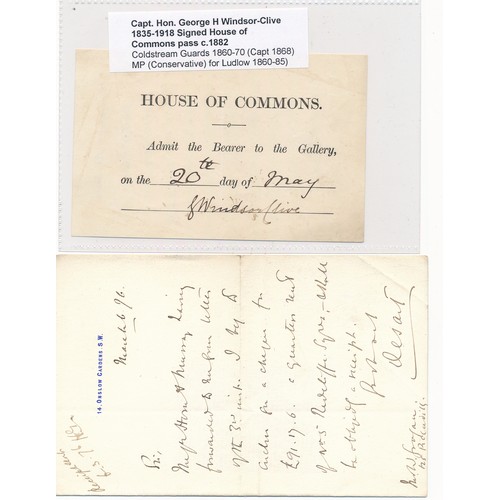 Capt. Hon. George H Windsor-Clive
1835-1918 Signed House of
Commons pass c.1882
Coldstream Guards 1860-70 (Capt 1868)
MP (Conservative) for Ludlow 1860-85)
HOUSE OF COMMONS.
Admit the Bearer to the Gallery,
on the 20th day of May
GWindsor Clive
14, ONSLOW GARDENS. S.W.
March 6 96.
Sir,
Messrs Horn & Murray having
forwarded to me your letter
of the 3rd inst. I beg to
enclose you a cheque for
£91.17.6. a Quarters rent
of No 5 Radcliffe Sqre, & shall
be obliged by a receipt.
Desart